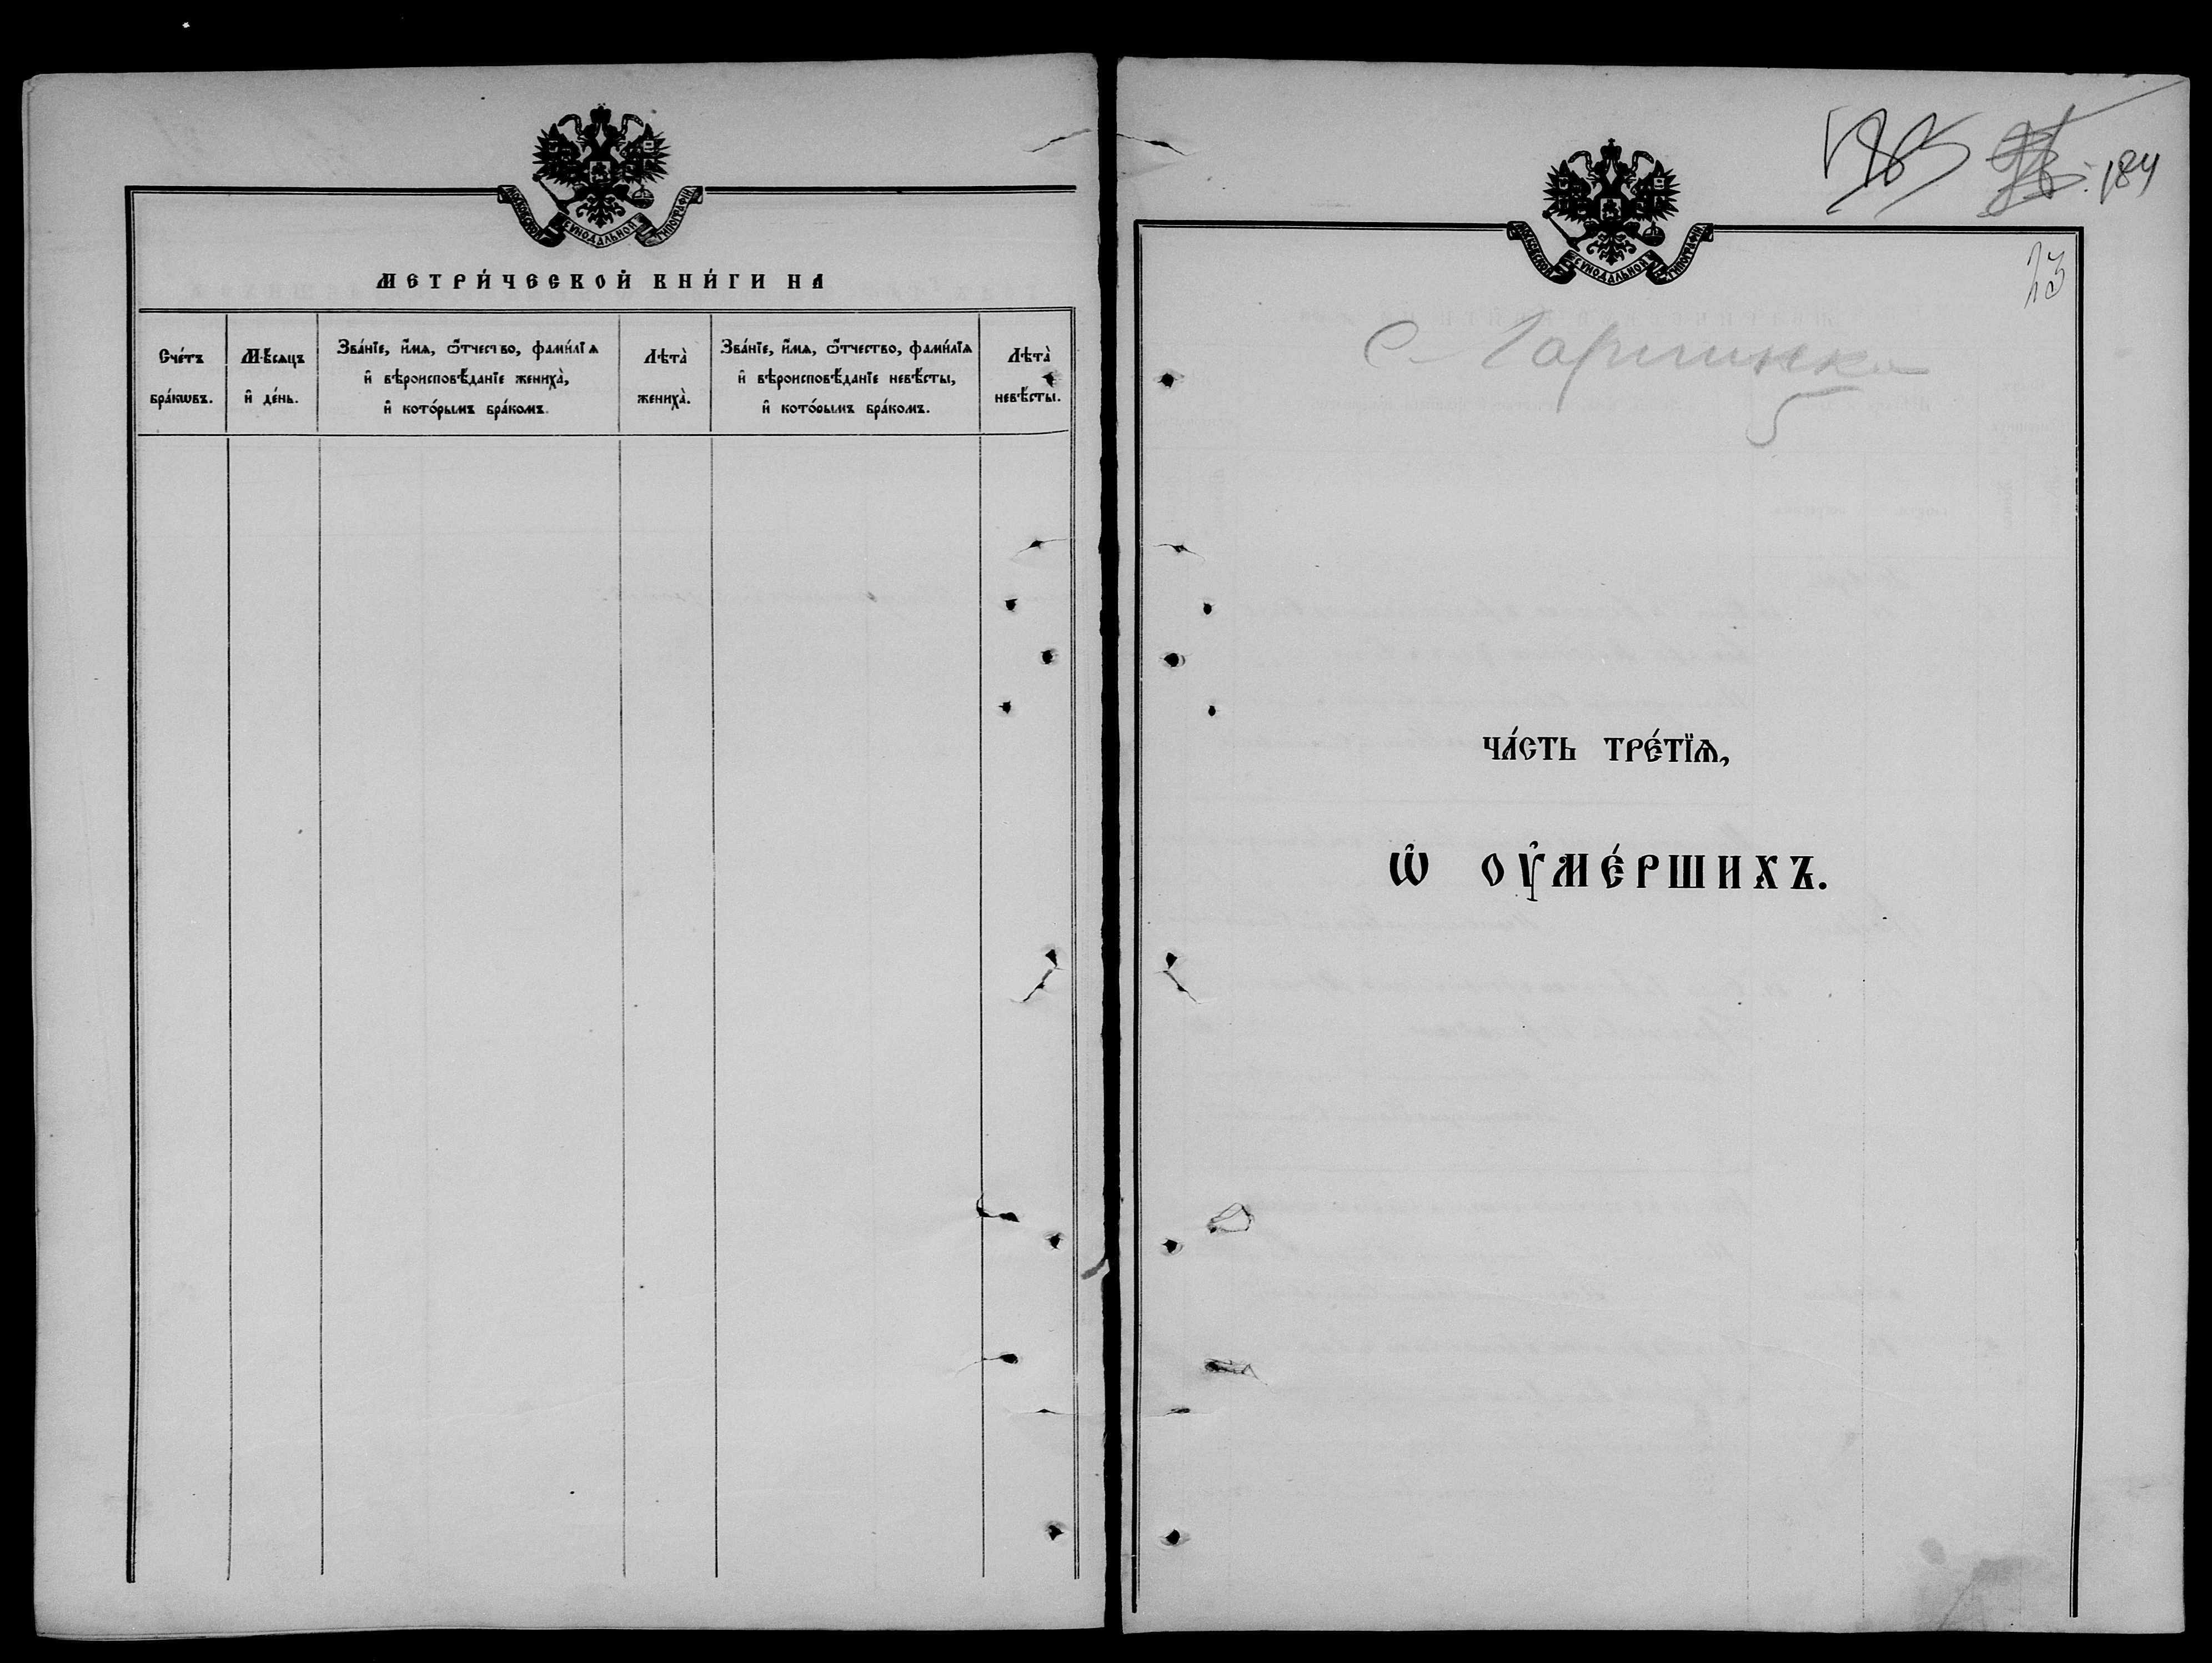 МОСКОВСКОЙ СѴНОДАЛЬНОЙ ТИПОГРАФІИ
МЕТРИ́ЧЕСКОЙ КНИ́ГИ НА
Сче́тъ
бра́кѡвъ.
М-ѣ́сяцъ
и҆ де́нь.
Зва́нїе, и҆́мѧ, ѻ҆́тчество, фами́лїѧ
и҆ вѣроисповѣ́данїе жениха̀,
и҆ кото́рымъ бра́комъ.
Лѣта̀
жениха̀.
Зва́нїе, и҆́мѧ, ѻ҆́тчество, фами́лїѧ
и҆ вѣроисповѣ́данїе невѣ́сты,
и҆ кото́рымъ бра́комъ.
Лѣта̀
невѣ́сты.
184
МОСКОВСКОЙ СѴНОДАЛЬНОЙ ТИПОГРАФІИ
23
с.
5
ЧА́СТЬ ТРЕ́ТЇѦ,
Ѡ҆ ОУ҆МЕ́РШИХЪ.